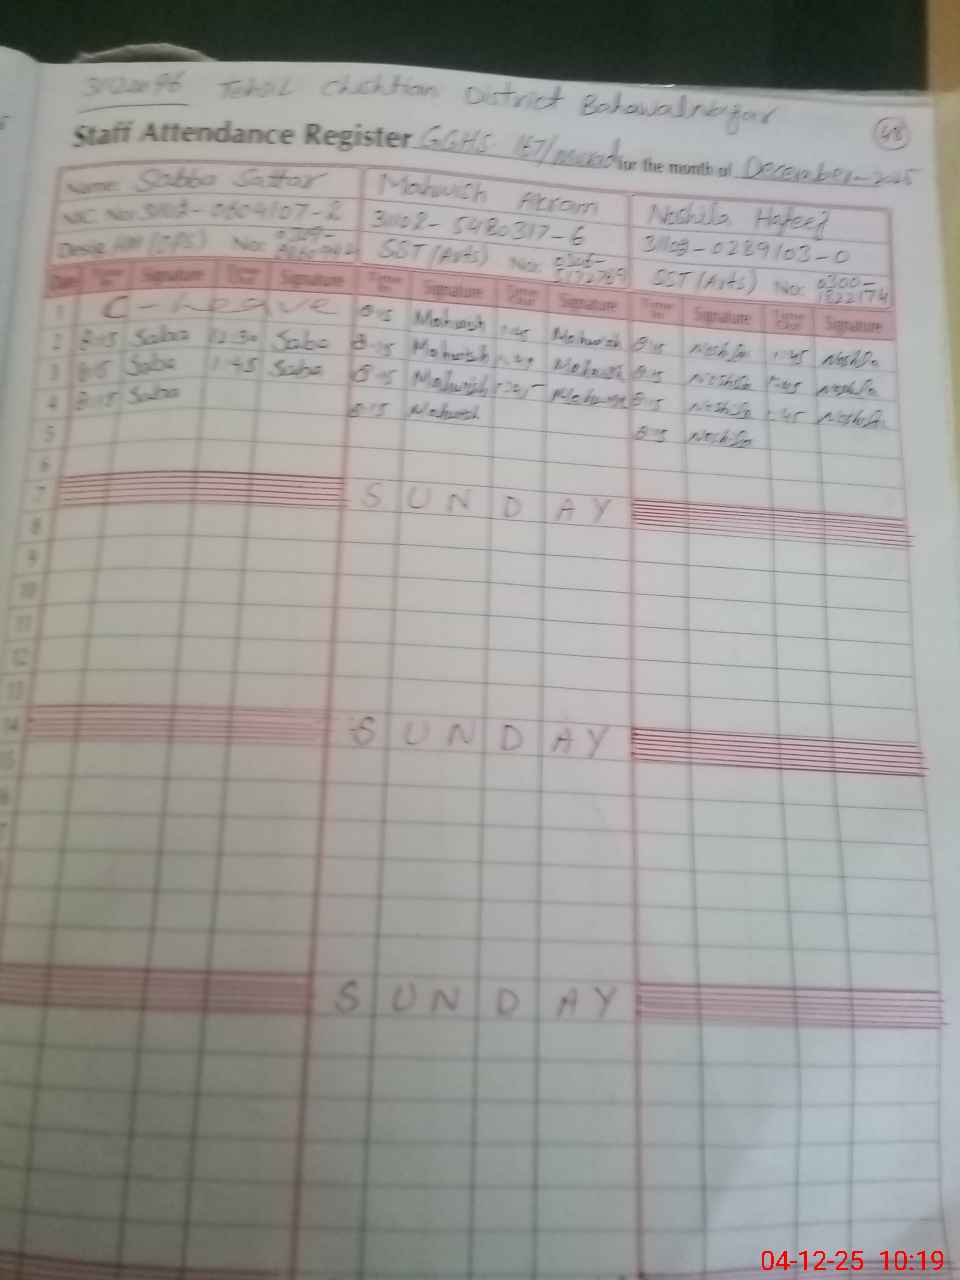 Tehsil Chishtian District Bahawalnagar
48
Staff Attendance Register GGHS 167/murad for the month of December-2025
Name: Sabba Sattar Mahwish Akram Noshila Hafeez
NIC No: 31102-0604107-2 31102-5480317-6 31103-0289103-0
Desig: HM (OPS) No: SST (Arts) No: SST (Arts) No: 0300-
Date Time In Signature Time Out Signature Time In Signature Time Out Signature Time In Signature Time Out Signature
1 C-Leave 8:15 Mahwish 1:45 Mahwish 8:15 1:45
2 8:15 Saba 12:30 Saba 8:15 Mahwish Mahwish 8:15 1:45
3 8:15 Saba 1:45 Saba 8:15 Mahwish Mahwish 8:15 1:45
4 8:15 Saba 8:15 Mahwish 8:15
5
6
7 S U N D A Y
8
9
10
11
12
13
14 S U N D A Y
15
S U N D A Y
04-12-25 10:19